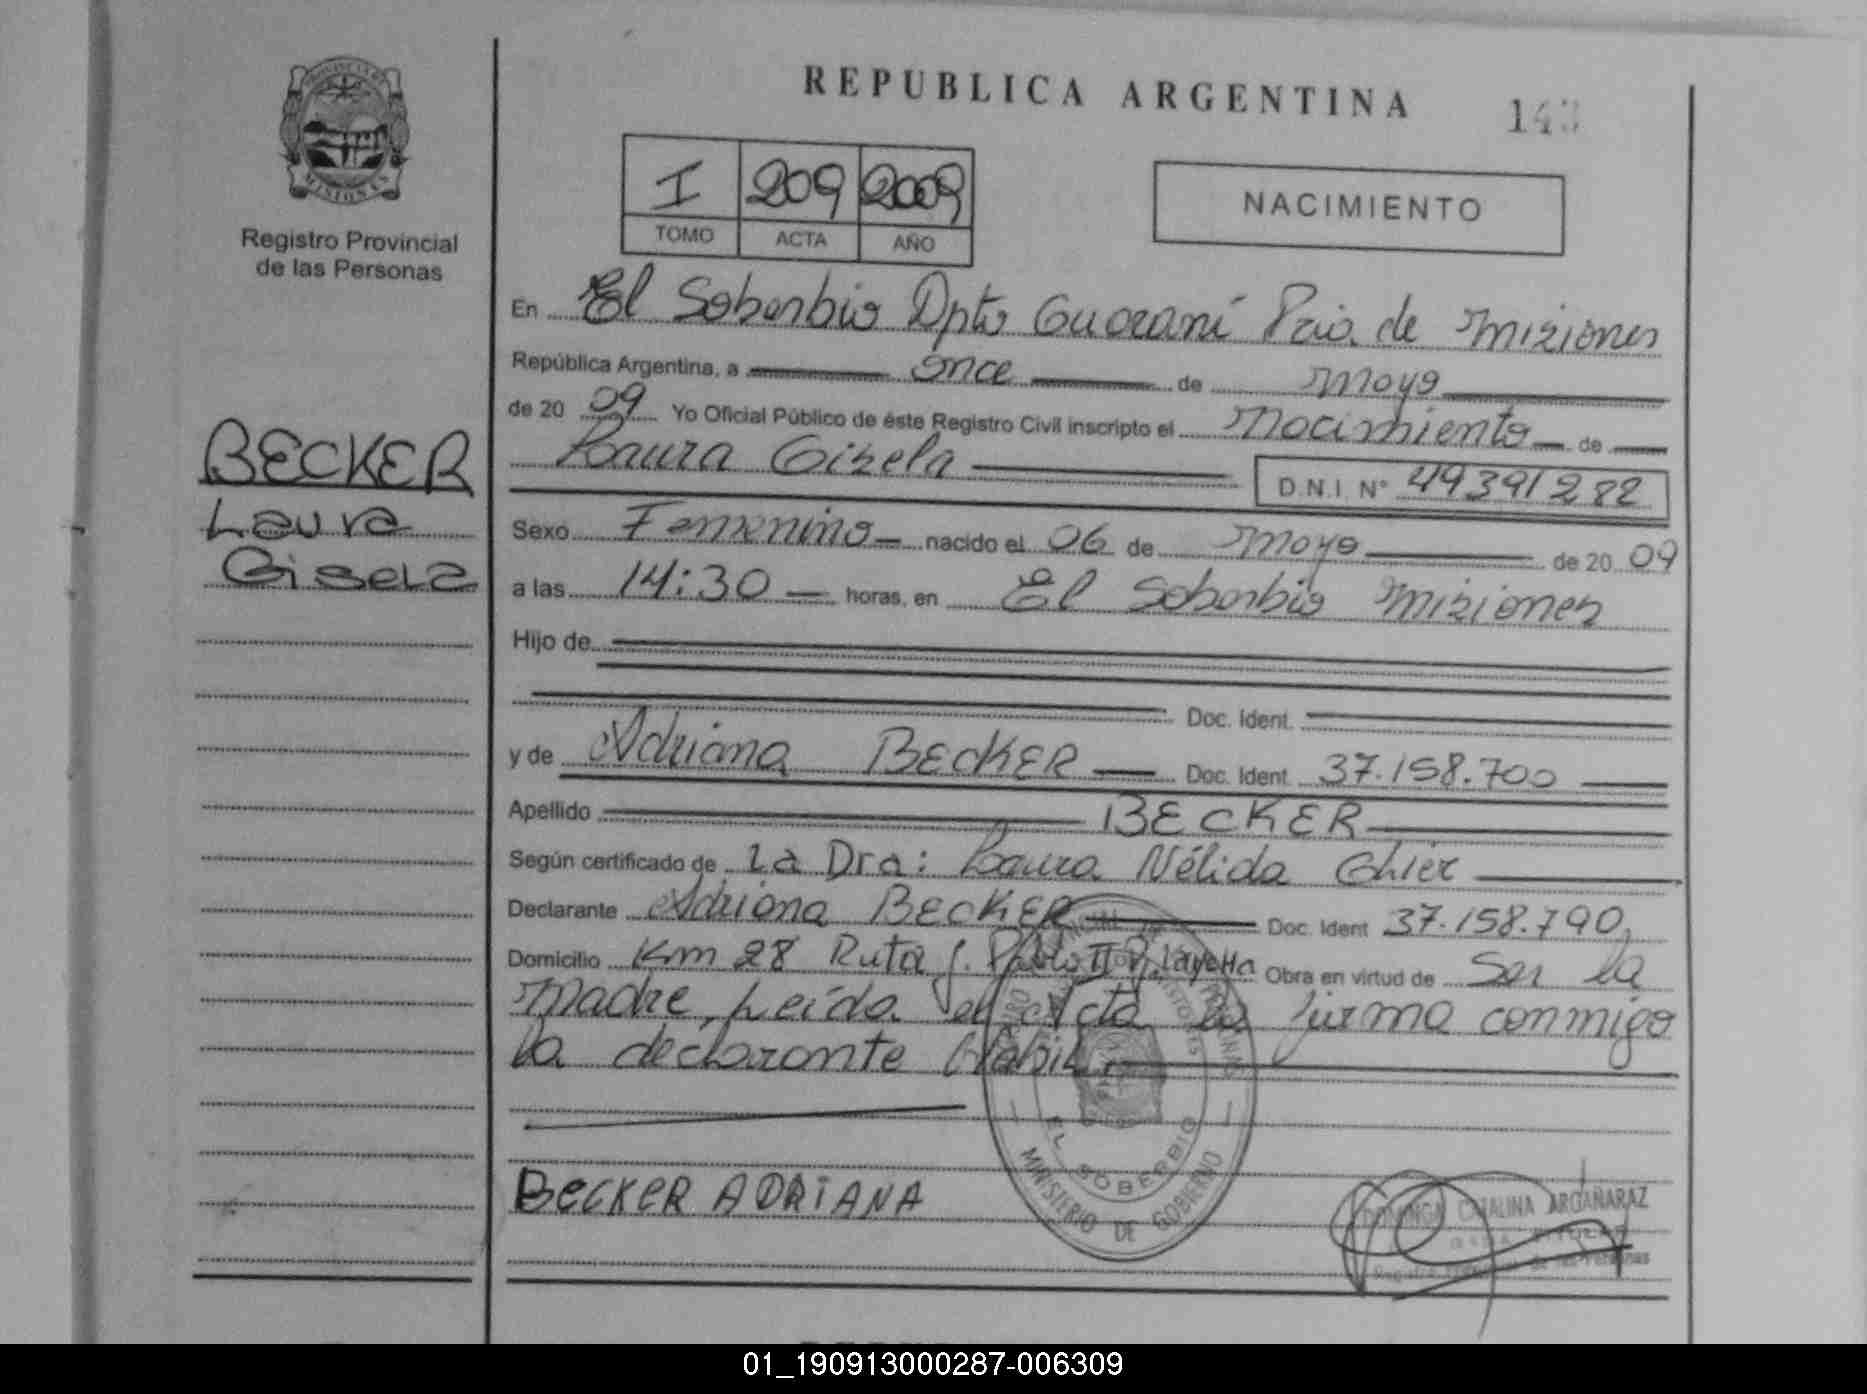 REPUBLICA ARGENTINA
143
PROVINCIA DE
MISIONES
Registro Provincial
de las Personas
I 209 2009
TOMO ACTA AÑO
NACIMIENTO
En El Soberbio Dpto Guaraní Pcia. de Misiones
República Argentina, a once de Mayo
de 2009 Yo Oficial Público de éste Registro Civil inscripto el Nacimiento de
Laura Gisela
D.N.I. Nº 49391282
BECKER
Laura
Gisela
Sexo Femenino nacido el 06 de Mayo de 2009
a las 14:30 horas, en El Soberbio Misiones
Hijo de
Doc. Ident.
y de Adriana BECKER Doc. Ident. 37.158.700
Apellido BECKER
Según certificado de La Dra: Laura Nélida Chier
Declarante Adriana BECKER Doc. Ident 37.158.790
Domicilio Km 28 Ruta J. Pablo II Obra en virtud de Ser la
Madre, Leída el Acta la firma conmigo
la declarante
EL SOBERBIO
MINISTERIO DE GOBIERNO
BECKER ADRIANA
DOMINGA CATALINA ARGAÑARAZ
01_190913000287-006309